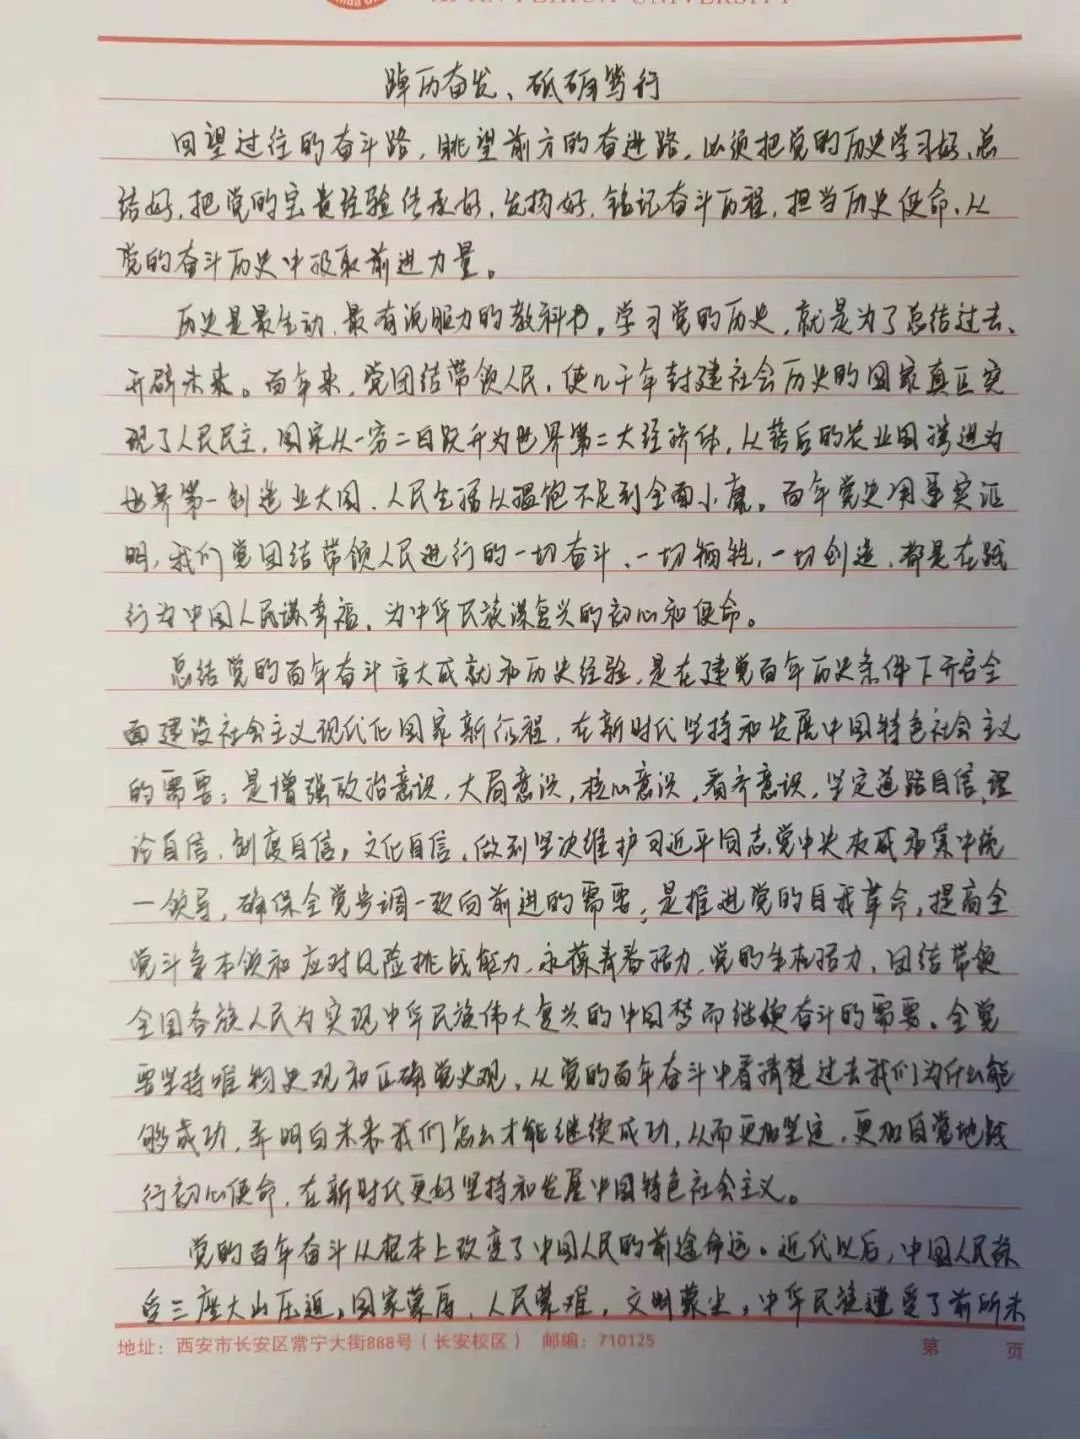 踔厉奋发、砥砺笃行
回望过往的奋斗路,眺望前方的奋进路,必须把党的历史学习好、总
结好,把党的宝贵经验传承好,发扬好,铭记奋斗历程,担当历史使命,从
党的奋斗历史中汲取前进力量。
历史是最生动、最有说服力的教科书。学习党的历史,就是为了总结过去、
开辟未来。百年来,党团结带领人民,使几千年封建社会历史的国家真正实
现了人民民主,国家从一穷二白跃升为世界第二大经济体,从落后的农业国演进为
世界第一创造业大国,人民生活从温饱不足到全面小康。百年党史用事实证
明,我们党团结带领人民进行的一切奋斗、一切牺牲,一切创造,都是在践
行为中国人民谋幸福,为中华民族谋复兴的初心和使命。
总结党的百年奋斗重大成就和历史经验,是在建党百年历史条件下开启全
面建设社会主义现代化国家新征程,在新时代坚持和发展中国特色社会主义
的需要;是增强政治意识,大局意识,核心意识,看齐意识,坚定道路自信,理
论自信,制度自信,文化自信,做到坚决维护习近平同志党中央权威和集中统
一领导,确保全党步调一致向前进的需要;是推进党的自我革命,提高全
党斗争本领和应对风险挑战能力,永葆青春活力,党的生机活力,团结带领
全国各族人民为实现中华民族伟大复兴的中国梦而继续奋斗的需要。全党
要坚持唯物史观和正确党史观,从党的百年奋斗中看清楚过去我们为什么能
够成功,弄明白未来我们怎么才能继续成功,从而更加坚定,更加自觉地践
行初心使命,在新时代更好坚持和发展中国特色社会主义。
党的百年奋斗从根本上改变了中国人民的前途命运。近代以后,中国人民深
受三座大山压迫,国家蒙辱,人民蒙难,文明蒙尘,中华民族遭受了前所未
地址:西安市长安区常宁大街888号(长安校区) 邮编:710125 第 页